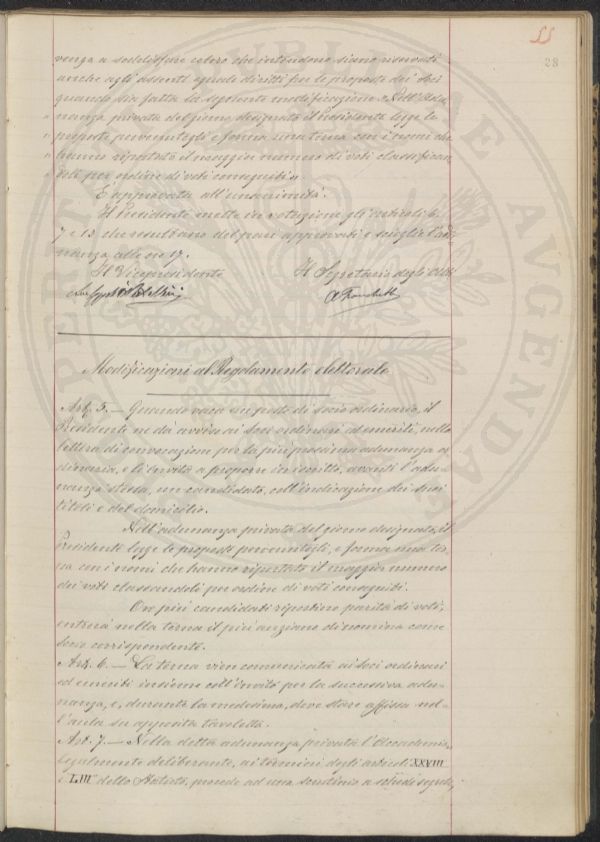 55
28
venga a soddisfare coloro che intendono siano riservati
anche agli assenti eguali diritti per le proposte dei Soci
quando sia fatta la seguente modificazione « Nell'Adu-
nanza privata del giorno designato il Presidente legge le
proposte pervenutegli e forma una terna con i nomi che
hanno riportato il maggior numero di voti classifican-
doli per ordine di voti conseguiti ».
È approvata all'unanimità.
Il Presidente mette in votazione gli articoli 6.
7 e 13 che risultano del pari approvati e scioglie l'adu-
nanza alle ore 17.
Il Vicepresidente
Il Segretario degli Atti
Modificazioni al Regolamento elettorale
Art. 5. — Quando vaca un posto di socio ordinario, il
Presidente ne dà avviso ai soci ordinari ed emeriti, nella
lettera di convocazione per la più prossima adunanza or-
dinaria, e li invita a proporre in iscritto, avanti l'adu-
nanza stessa, un candidato, coll'indicazione dei suoi
titoli e del domicilio.
Nell'adunanza privata del giorno designato, il
Presidente legge le proposte pervenutegli, e forma una ter-
na con i nomi che hanno riportato il maggior numero
dei voti classandoli per ordine di voti conseguiti.
Ove più candidati riportino parità di voti,
entrerà nella terna il più anziano di nomina come
socio corrispondente.
Art. 6. — La terna vien comunicata ai soci ordinari
ed emeriti insieme coll'invito per la successiva adu-
nanza, e, durante la medesima, deve stare affissa nel-
l'aula su apposita tavoletta.
Art. 7. — Nella detta adunanza privata l'Accademia,
legalmente deliberante, ai termini degli articoli XXVIII
e LIII dello Statuto, procede ad uno scrutinio a schede segrete,